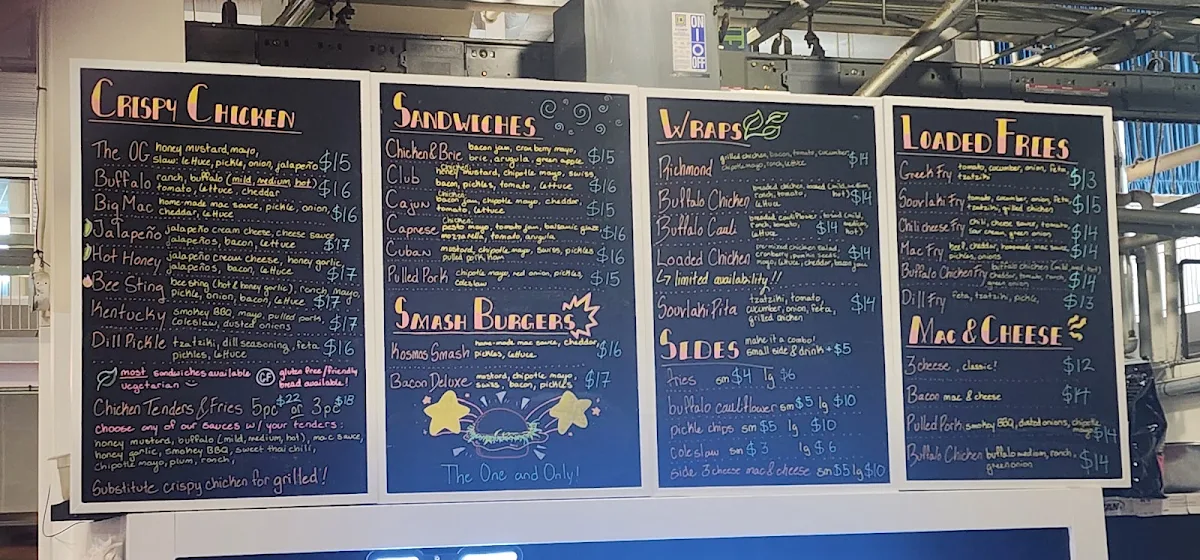 ON
OFF
CRISPY CHICKEN
The OG honey mustard, mayo, $15
slaw: lettuce, pickle, onion, jalapeño
Buffalo ranch, buffalo (mild, medium, hot) $16
tomato, lettuce, cheddar
Big Mac home-made mac sauce, pickle, onion, $16
cheddar, lettuce
Jalapeño jalapeño cream cheese, cheese sauce $17
jalapeños, bacon, lettuce
Hot Honey jalapeño cream cheese, honey garlic $17
jalapeños, bacon, lettuce
Bee Sting bee sting (hot & honey garlic), ranch, mayo,
pickle, onion, bacon, lettuce $17
Kentucky smokey BBQ, mayo, pulled pork, $17
coleslaw, dusted onions
Dill Pickle tzatziki, dill seasoning, feta $16
pickles, lettuce
most sandwiches available vegetarian
GF gluten free/friendly bread available!
Chicken Tenders & Fries 5pc $22 or 3pc $18
choose any of our sauces w/ your tenders:
honey mustard, buffalo (mild, medium, hot), mac sauce,
honey garlic, smokey BBQ, sweet thai chili,
chipotle mayo, plum, ranch,
Substitute crispy chicken for grilled!
SANDWICHES
Chicken & Brie bacon jam, cranberry mayo, $15
brie, arugula, green apple
Club chicken, honey mustard, chipotle mayo, swiss, $16
bacon, pickles, tomato, lettuce
Cajun chicken, bacon jam, chipotle mayo, cheddar, $15
tomato, lettuce
Caprese chicken, pesto mayo, tomato jam, balsamic glaze $16
mozzarella, tomato, arugula
Cuban mustard, chipotle mayo, swiss, pickles $16
pulled pork, ham
Pulled Pork chipotle mayo, red onion, pickles, $15
coleslaw
SMASH BURGERS
Kosmos Smash home-made mac sauce, cheddar $16
pickles, lettuce
Bacon Deluxe mustard, chipotle mayo, $17
swiss, bacon, pickles
The One and Only!
WRAPS
Richmond grilled chicken, bacon, tomato, cucumber $14
chipotle mayo, ranch, lettuce
Buffalo Chicken breaded chicken, (mild, medium, hot) $14
ranch, tomato,
lettuce
Buffalo Cauli breaded cauliflower, (mild, medium, hot) $14
ranch, tomato,
lettuce
Loaded Chicken pre-mixed chicken salad, $14
cranberry, pumpkin seeds,
mayo, lettuce, cheddar, bacon jam
limited availability!!
Souvlaki Pita tzatziki, tomato, $14
cucumber, onion, feta,
grilled chicken
SIDES make it a combo!
small side & drink + $5
fries sm $4 lg $6
buffalo cauliflower sm $5 lg $10
pickle chips sm $5 lg $10
coleslaw sm $3 lg $6
side 3 cheese mac & cheese sm $5 lg $10
LOADED FRIES
Greek Fry tomato, cucumber, onion, feta, $13
tzatziki
Souvlaki Fry tomato, cucumber, onion, feta, $15
tzatziki, grilled chicken
Chili cheese Fry chili, cheese sauce, tomato $14
sour cream, green onion
Mac Fry beef, cheddar, homemade mac sauce $14
pickles, onions
Buffalo Chicken Fry buffalo chicken (mild, med, hot) $14
cheddar, tomato, ranch,
green onion
Dill Fry feta, tzatziki, pickle, $13
MAC & CHEESE
3 cheese classic! $12
Bacon mac & cheese $14
Pulled Pork smokey BBQ, dusted onions, chipotle $14
Buffalo Chicken buffalo medium, ranch, $14
green onion